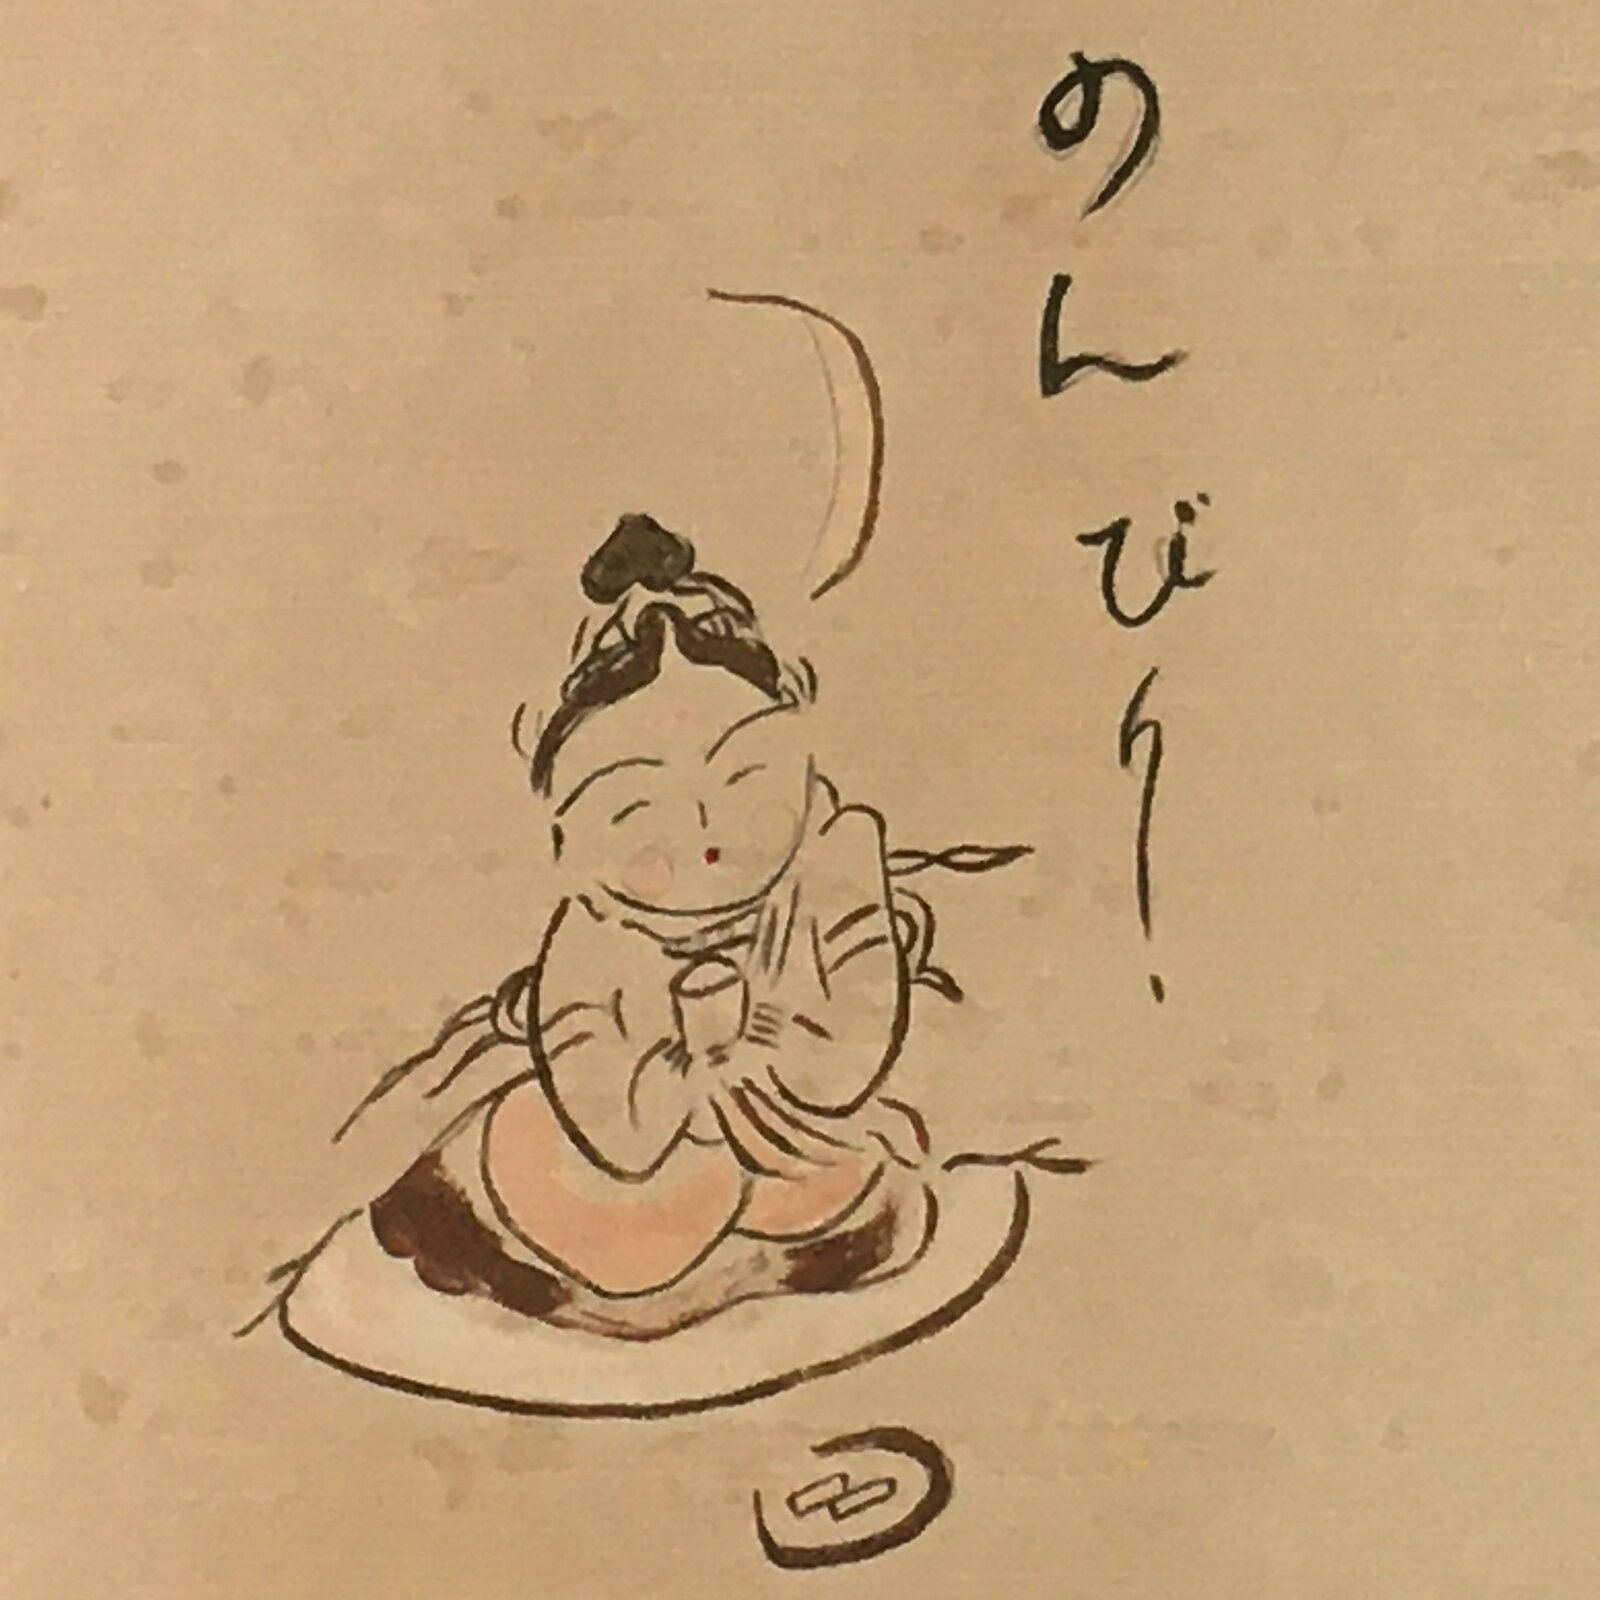 のんびり.